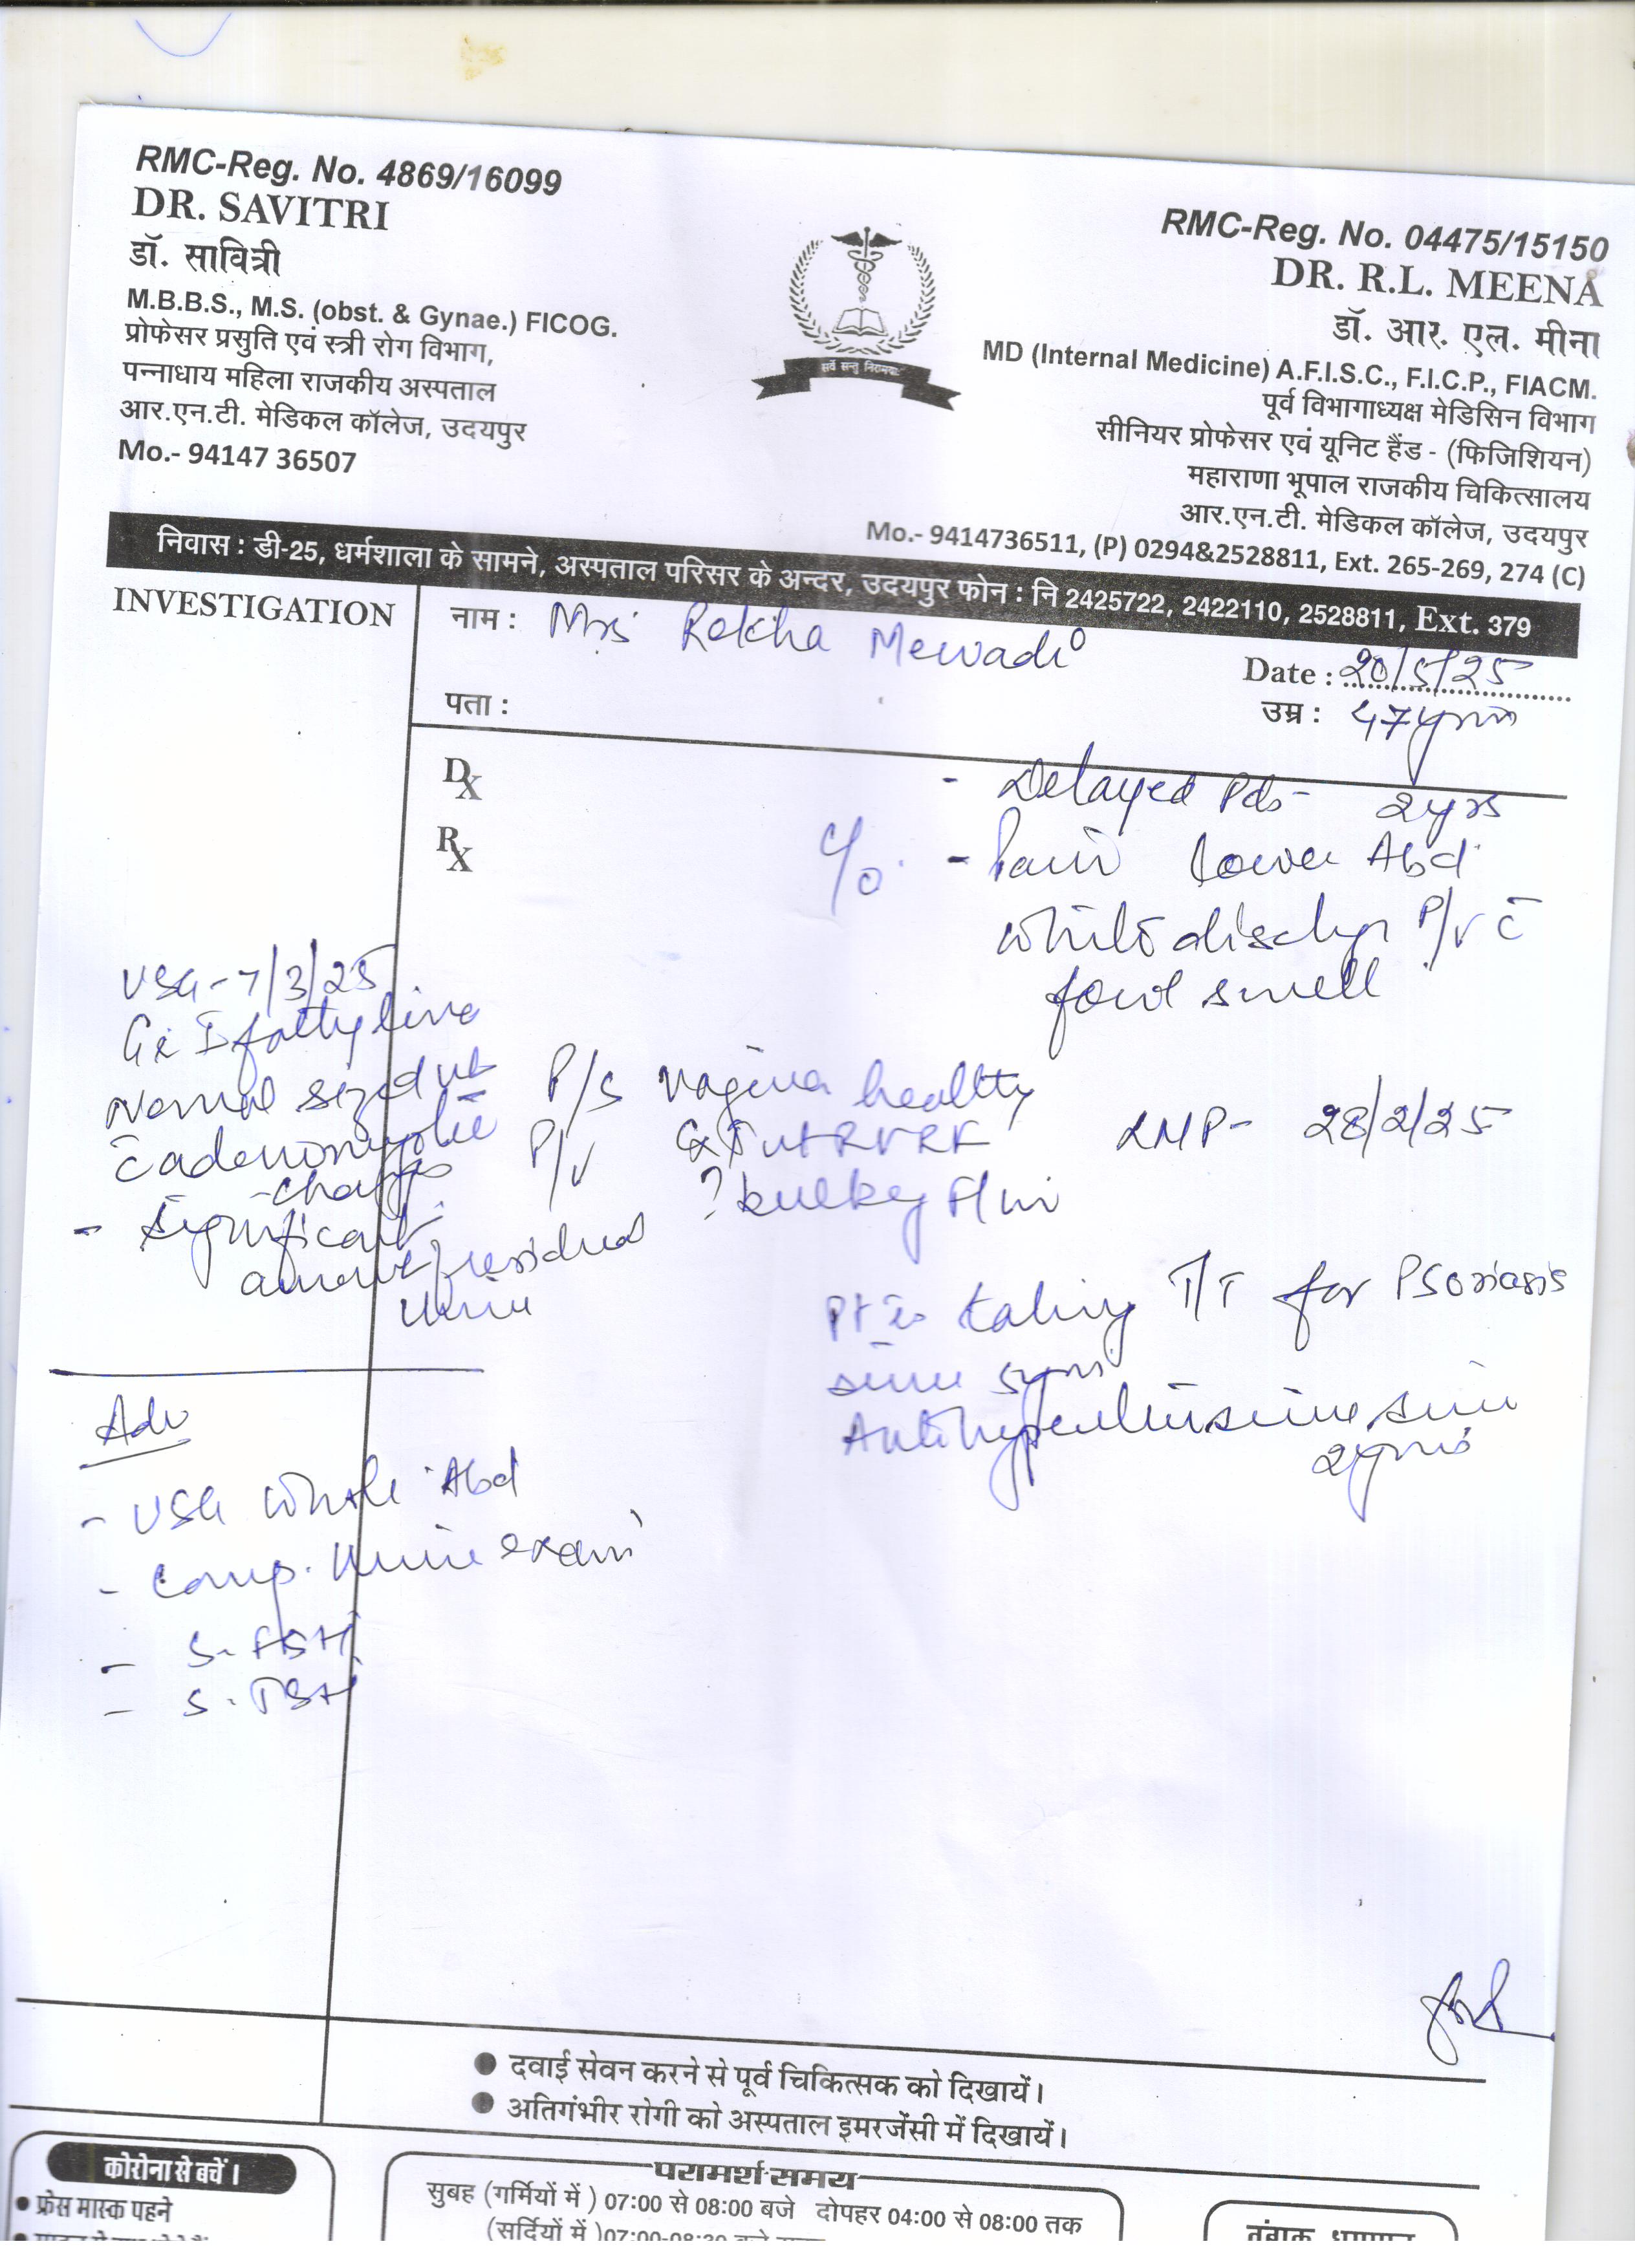 RMC-Reg. No. 4869/16099
DR. SAVITRI
डॉ. सावित्री
M.B.B.S., M.S. (obst. & Gynae.) FICOG.
प्रोफेसर प्रसुति एवं स्त्री रोग विभाग,
पन्नाधाय महिला राजकीय अस्पताल
आर.एन.टी. मेडिकल कॉलेज, उदयपुर
Mo.- 94147 36507
सर्वे सन्तु निरामयाः
RMC-Reg. No. 04475/15150
DR. R.L. MEENA
डॉ. आर. एल. मीना
MD (Internal Medicine) A.F.I.S.C., F.I.C.P., FIACM.
पूर्व विभागाध्यक्ष मेडिसिन विभाग
सीनियर प्रोफेसर एवं यूनिट हैंड - (फिजिशियन)
महाराणा भूपाल राजकीय चिकित्सालय
आर.एन.टी. मेडिकल कॉलेज, उदयपुर
Mo.- 9414736511, (P) 0294&2528811, Ext. 265-269, 274 (C)
निवास : डी-25, धर्मशाला के सामने, अस्पताल परिसर के अन्दर, उदयपुर फोन : नि 2425722, 2422110, 2528811, Ext. 379
INVESTIGATION
नाम : Mrs Rekha Mewadi
Date : 20/5/25
पता :
उम्र : 47 yrs
Dx
Rx
- Delayed Pds - 2yrs
C/o. - Pain lower Abd
white dischg P/v c̄
foul smell
USG - 7/3/25
Gr I fatty liver
Normal sized ut
c̄ adenomyotic
changes
- Significant
amount residual
urine
P/S vagina healthy
P/v Cx ut RVRF
? bulky
LMP- 28/2/25
Pt is taking T/T for Psoriasis
since 5yrs
Antihypertensive since
2yrs
Adv
- USG Whole Abd
- Comp. Urine exam
- S. FSH
- S. TSH
दवाई सेवन करने से पूर्व चिकित्सक को दिखायें।
अतिगंभीर रोगी को अस्पताल इमरजेंसी में दिखायें।
कोरोना से बचें।
फ्रेस मास्क पहने
परामर्श समय
सुबह (गर्मियों में ) 07:00 से 08:00 बजे दोपहर 04:00 से 08:00 तक
(सर्दियों में )07:00-08:30